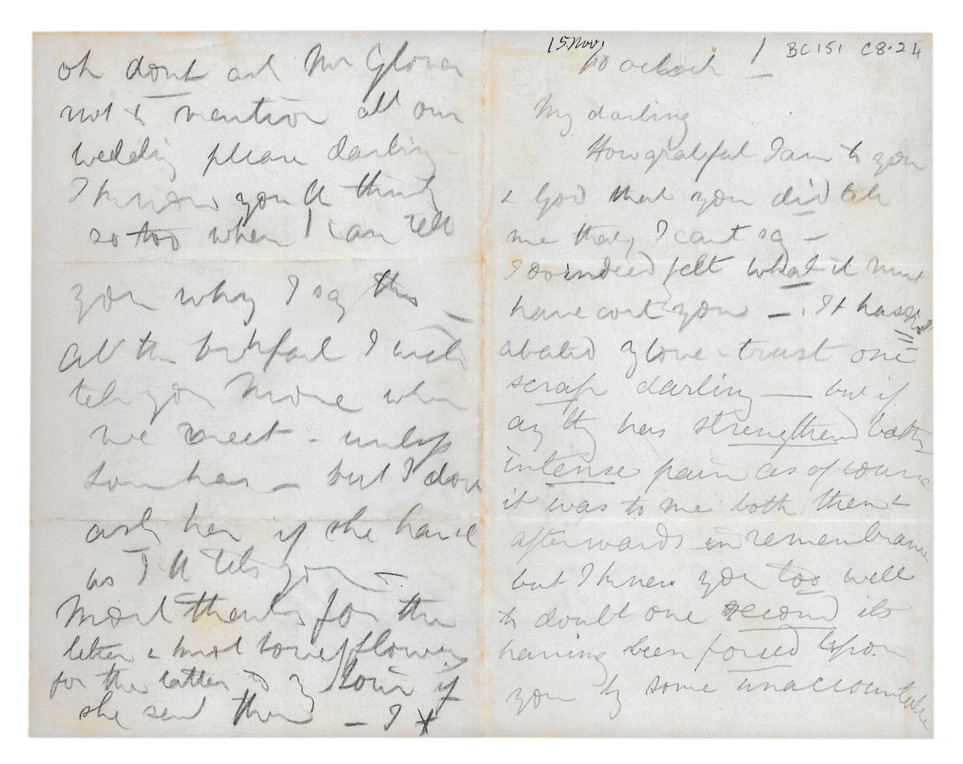 15 Nov,
10 oclock
1
BC151 C8.24
My darling
How grateful I am to you
& God that you did tell
me that, I cant say –
I do indeed felt what it must
have cost you – . It has
abated love - trust one
scrap darling — but if
any thg has strengthened both
intense pain as of course
it was to me both then &
afterwards in remembrance
but I knew you too well
to doubt one second its
having been forced upon
you by some unaccountable
oh dont ask Mr Glover
not to mention all our
wedding please darling
I know you'll think
so too when I can tell
you why I say this
All the I will
tell you More when
we meet - unless
– but I dont
ask her if she have
as I'll tell you –
Most thanks for the
letter & most flowers
for the latter to yr if
she send them – I